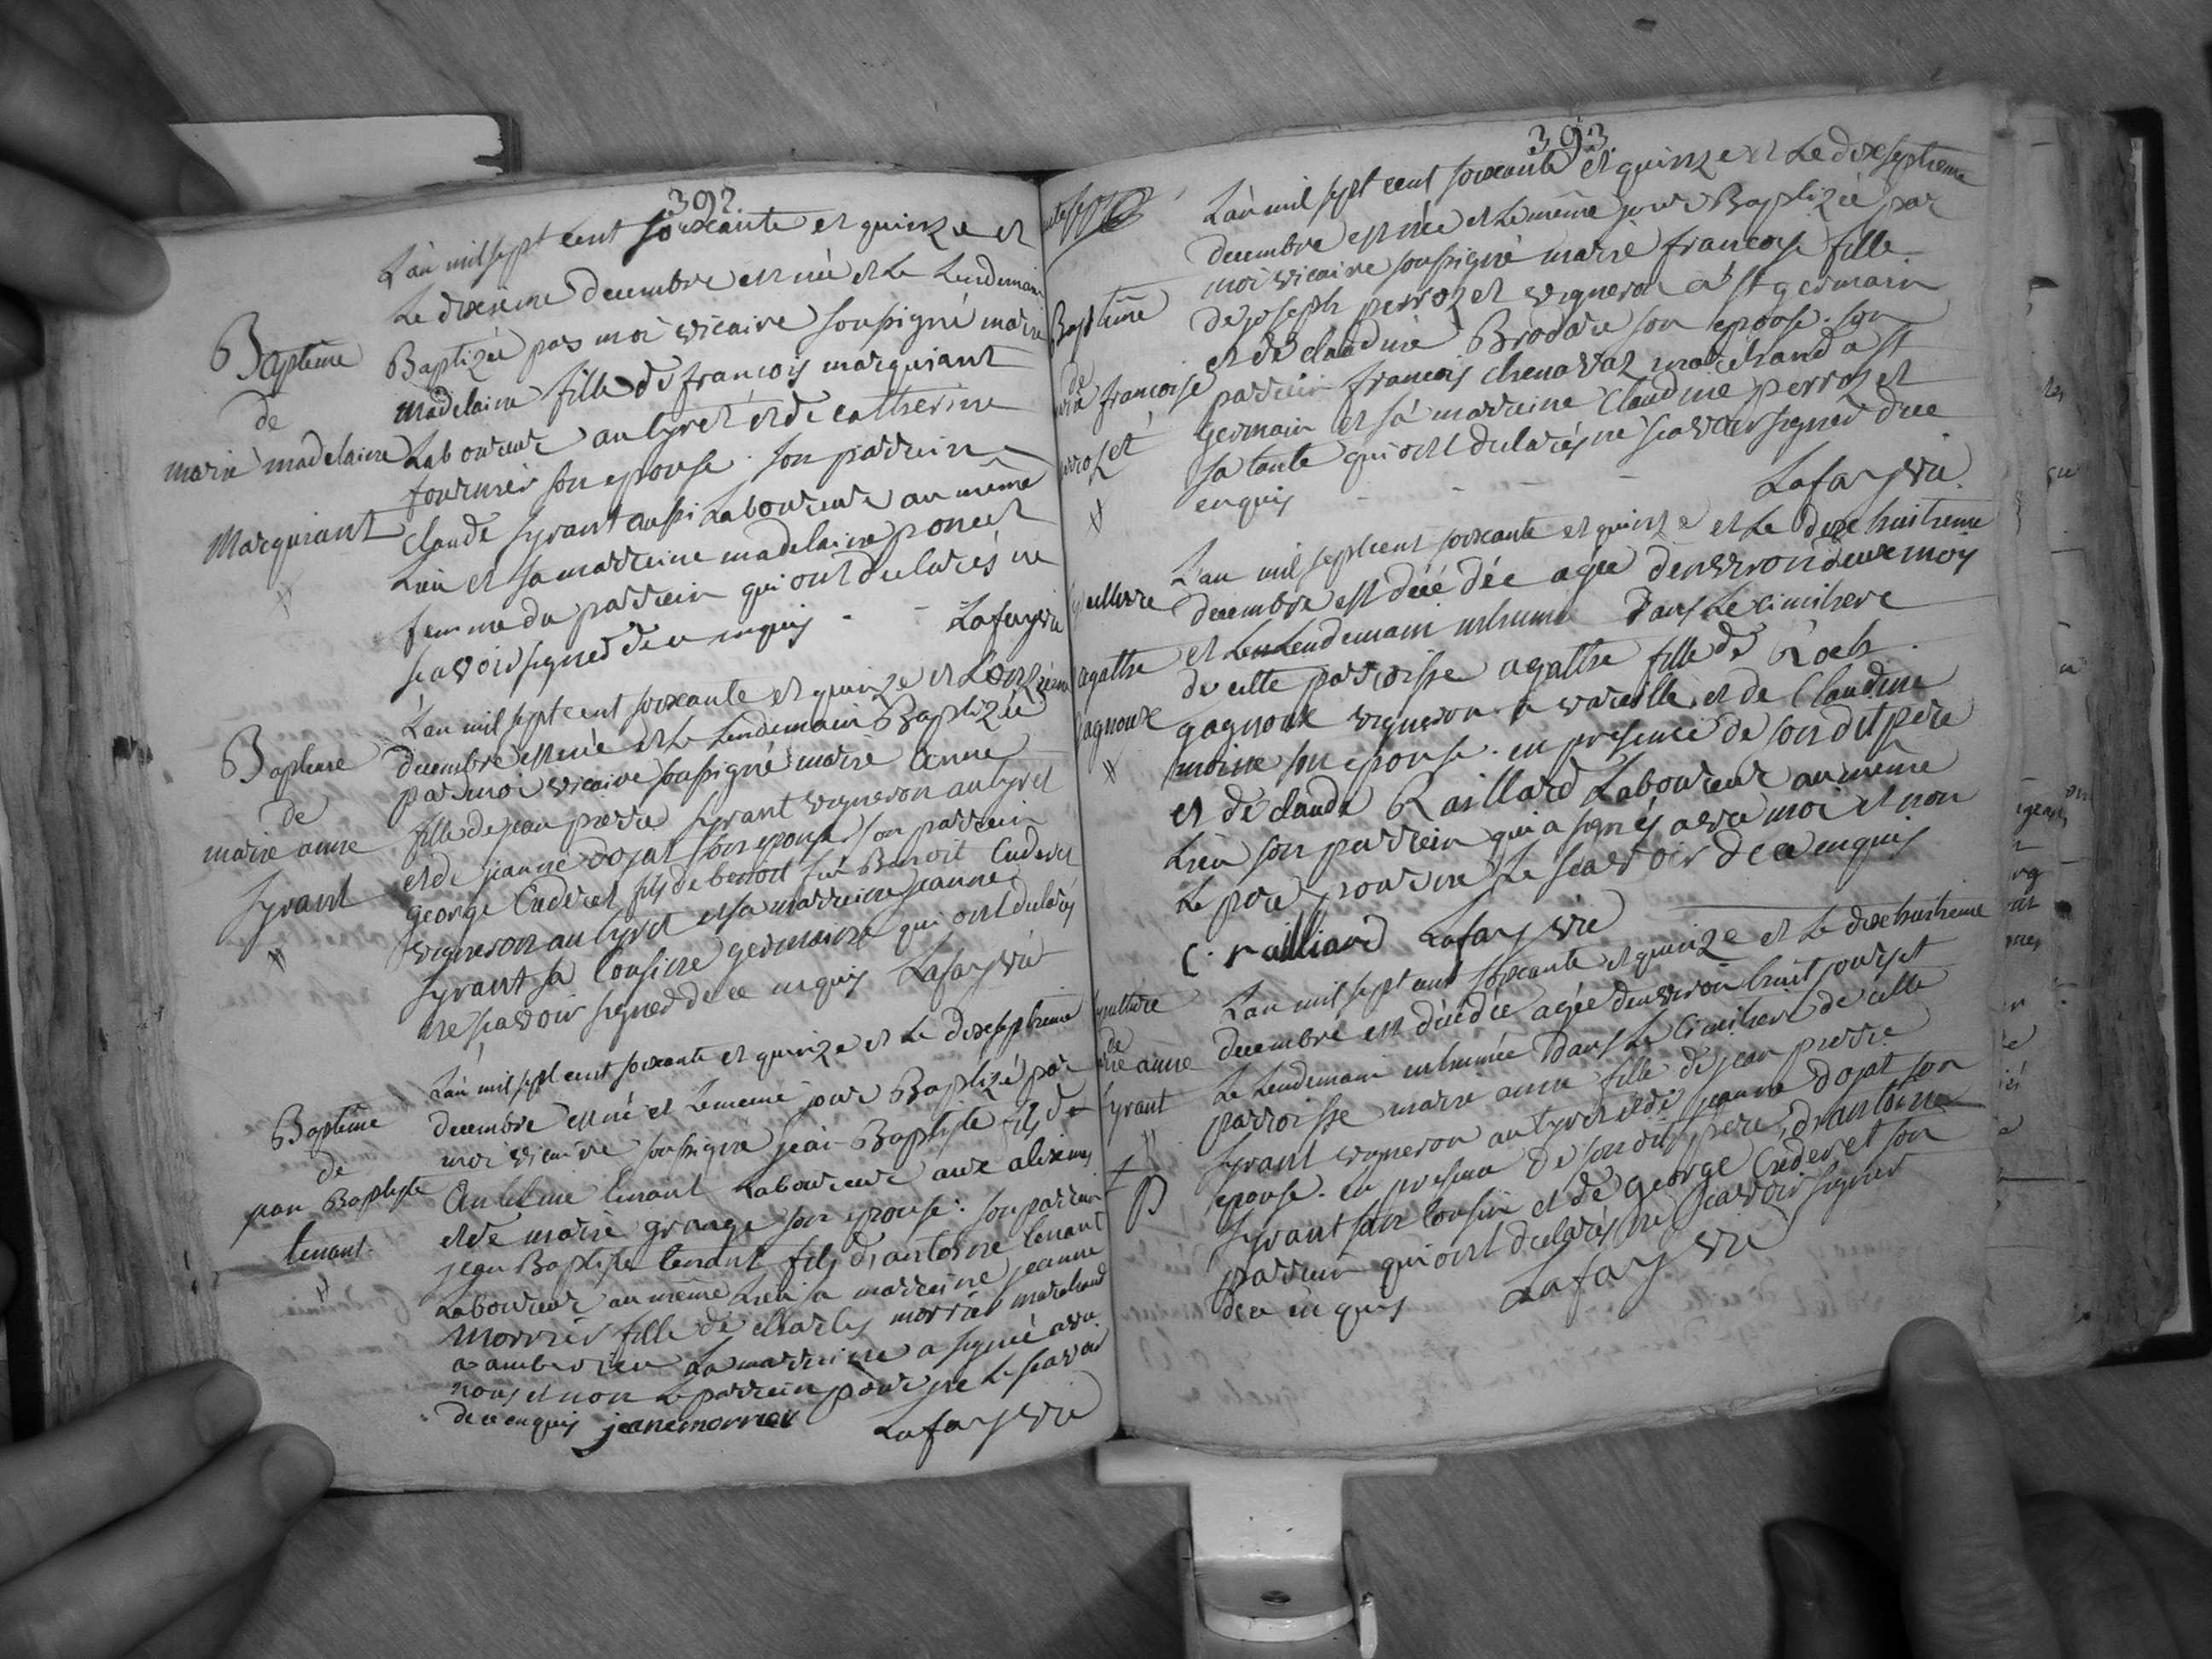 392
L'an mil sept cent soixante et quinze et
Le dixieme decembre est née et le Lendemain
Baptême
Baptizée par moi vicaire soussigné marie
de
madelaine fille de francois marquiant
marie madelaine
Laboureur au tyret et de catherine
fournier son epouse. son parrain
Marquiant
claude syrant aussi Laboureur au même
Lieu et sa marreine madelaine poncet
femme du parrein qui ont declarés ne
scavoir signer de ce enquis - - Lafay vic
L'an mil sept cent soixante et quinze et Le onzieme
Bapteme
decembre est née et le Lendemain Baptizée
par moi vicaire soussigné marie anne
de
fille de jean pierre syrant vigneron au tyret
marie anne
et de jeanne dojat son epouse son parrein
syrant
george Cuderet fils de benoit
vigneron au tyret et sa marreine jeanne
syrant sa Cousine germaine qui ont declarés
ne scavoir signer de ce enquis Lafay vic
L'an mil sept cent soixante et quinze et le dixseptieme
Baptême
decembre est né et Lememe jour Baptizé par
de
moi vicaire soussigné jean-Baptiste fils de
jean Baptiste
Antelme tenant Laboureur aux alixmes
tenant
et de marie grange son epouse: son parrein
jean Baptiste tenant fils d'antoine tenant
Laboureur au même Lieu sa marreine jeanne
Morrier fille de charles morrier marchand
a amberieu La marreine a signé avec
nous et non Le parrein pour ne Le scavoir
de ce enquis jeane morrier Lafay vic
393
L'an mil sept cent soixante et quinze et Le dixseptieme
decembre est née et Lemême jour Baptizée par
moi vicaire soussigné marie francoise fille
Baptême
de joseph perrozet vigneron a st germain
de
et de claudine Brodare son epouse. son
francoise
parrein francois chenavaz marchand a st
Germain et sa marreine Claudine perrozet
sa tante qui ont declarés ne scavoir signer de ce
enquis - - - - Lafay vic.
L'an mil sept cent soixante et quinze et Le dixe huitieme
decembre est décédée agée d'environ deux mois
et Le Lendemain inhumé dans Le cimitiere
agathe
de cette parroisse agathe fille de Roch
gagnoux
gagnoux vigneron a vareille et de Claudine
moine son epouse. en presence de son dit pere
et de claude Raillard Laboureur au même
Lieu son parrein qui a signés avec moi et non
Le pere pour ne Le scavoir de ce enquis
C. railliard Lafay vic
L'an mil sept cent soixante et quinze et Le dixehuitieme
decembre est décédée agée d'environ huit jours et
de
Le Lendemain inhumée dans Le Cimitiere de cette
anne
parroisse marie anne fille de jean pierre
syrant
syrant vigneron au tyret et de jeanne dojat son
epouse. en presence de son dit pere, d'antoine
syrant son Cousin et de George Cuderet son
parrein qui ont declarés ne scavoir signer
de ce enquis Lafay vic